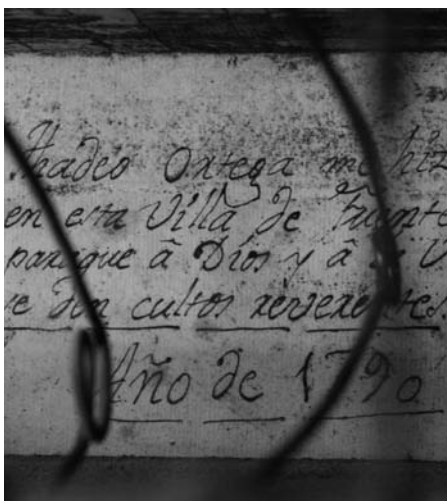 Thadeo Ortega me hiz
en esta Villa de Fuente
para que â Dios y â V
se den cultos reverentes.
Año de 1790